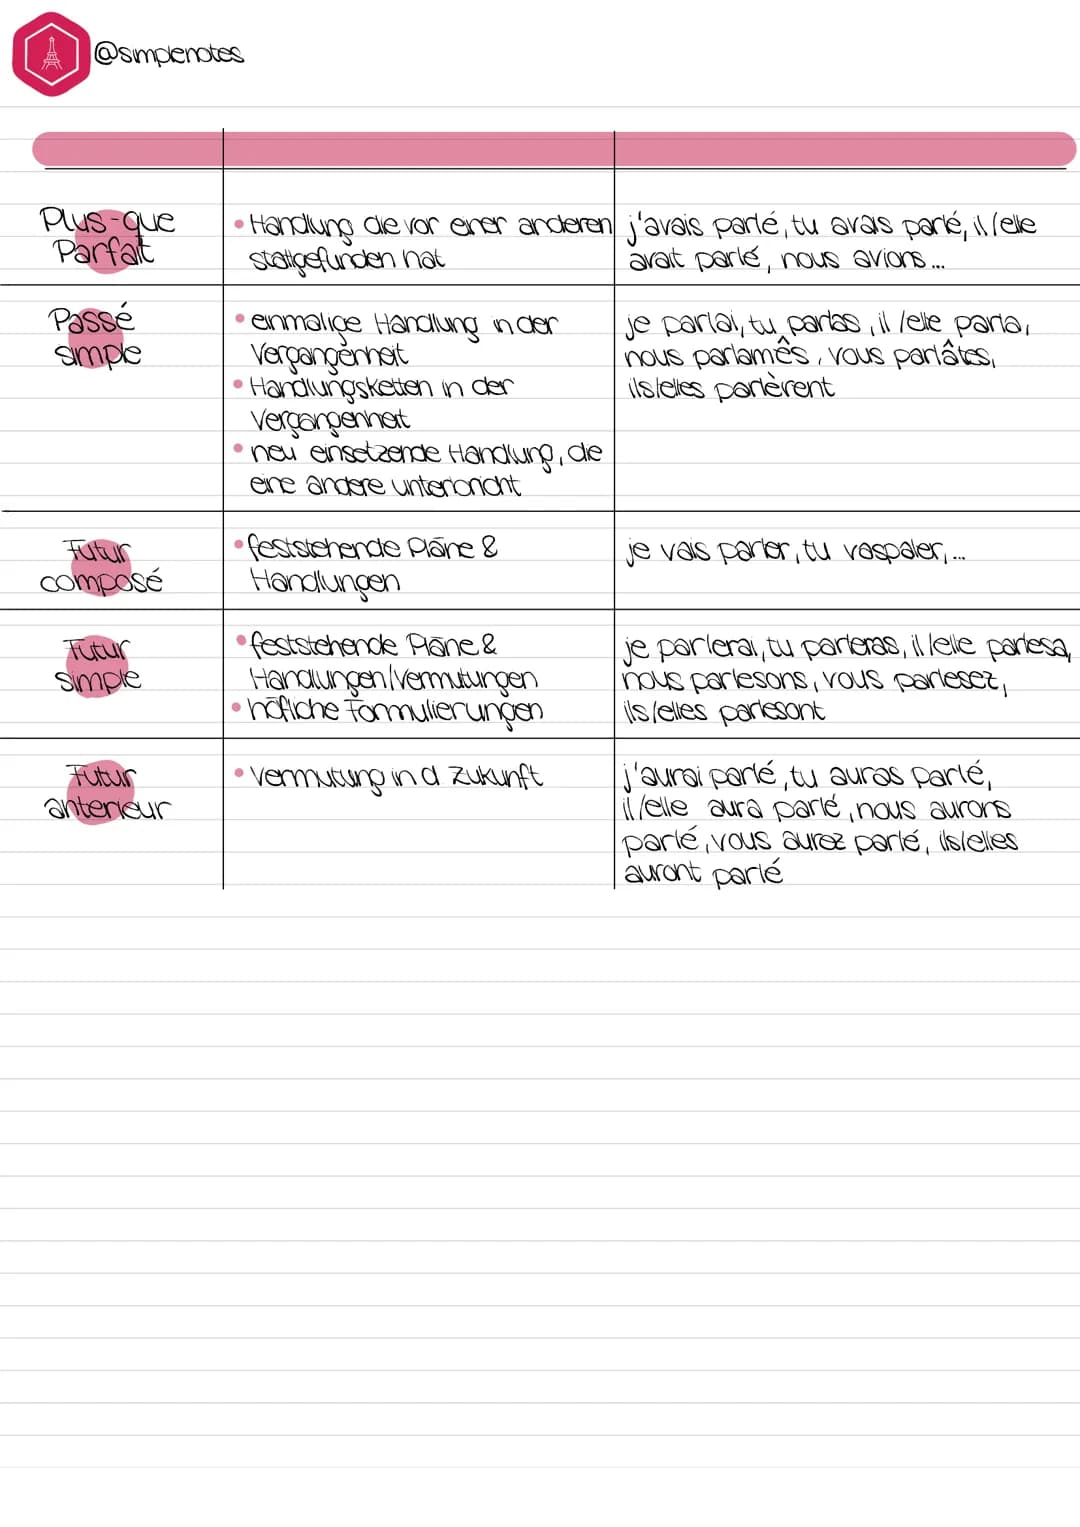 @simplenotes
Plus-que
Parfait
• Handlung die vor einer anderen
stattgefunden hat
j'avais parlé, tu avais parlé, il/elle
avait parlé, nous avions...
Passé
simple
• einmalige Handlung in der
Vergangenheit
• Handlungsketten in der
Vergangenheit
• neu einsetzende Handlung, die
eine andere unterbricht
je parlai, tu parlas, il/elle parla,
nous parlamês, vous parlâtes,
ils/elles parlèrent
Futur
composé
• feststehende Pläne &
Handlungen
je vais parler, tu vaspaler,...
Futur
simple
• feststehende Pläne &
Handlungen/Vermutungen
• höfliche Formulierungen
je parlerai, tu parleras, il/elle parlesa,
nous parlesons, vous parlesez,
ils/elles parlesont
Futur
anterieur
• Vermutung in d Zukunft
j'aurai parlé, tu auras parlé,
il/elle aura parlé, nous aurons
parlé, vous aurez parlé, ils/elles
auront parlé